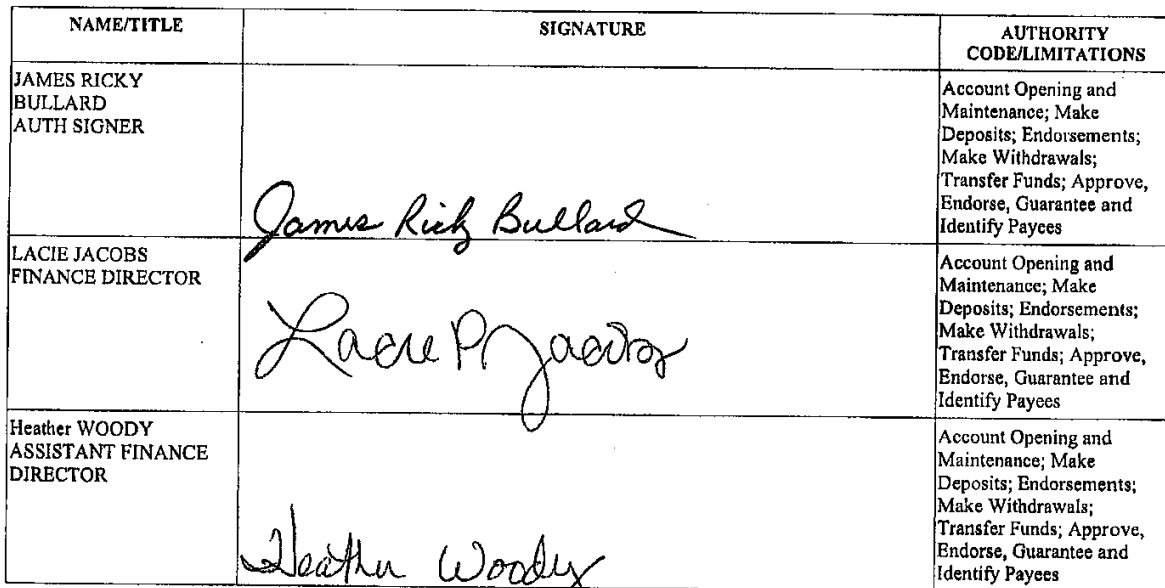 NAME/TITLE SIGNATURE AUTHORITY
CODE/LIMITATIONS
JAMES RICKY
BULLARD
AUTH SIGNER
James Rick Bullard
Account Opening and
Maintenance; Make
Deposits; Endorsements;
Make Withdrawals;
Transfer Funds; Approve,
Endorse, Guarantee and
Identify Payees
LACIE JACOBS
FINANCE DIRECTOR
Lacie P Jacobs
Account Opening and
Maintenance; Make
Deposits; Endorsements;
Make Withdrawals;
Transfer Funds; Approve,
Endorse, Guarantee and
Identify Payees
Heather WOODY
ASSISTANT FINANCE
DIRECTOR
Heather Woody
Account Opening and
Maintenance; Make
Deposits; Endorsements;
Make Withdrawals;
Transfer Funds; Approve,
Endorse, Guarantee and
Identify Payees